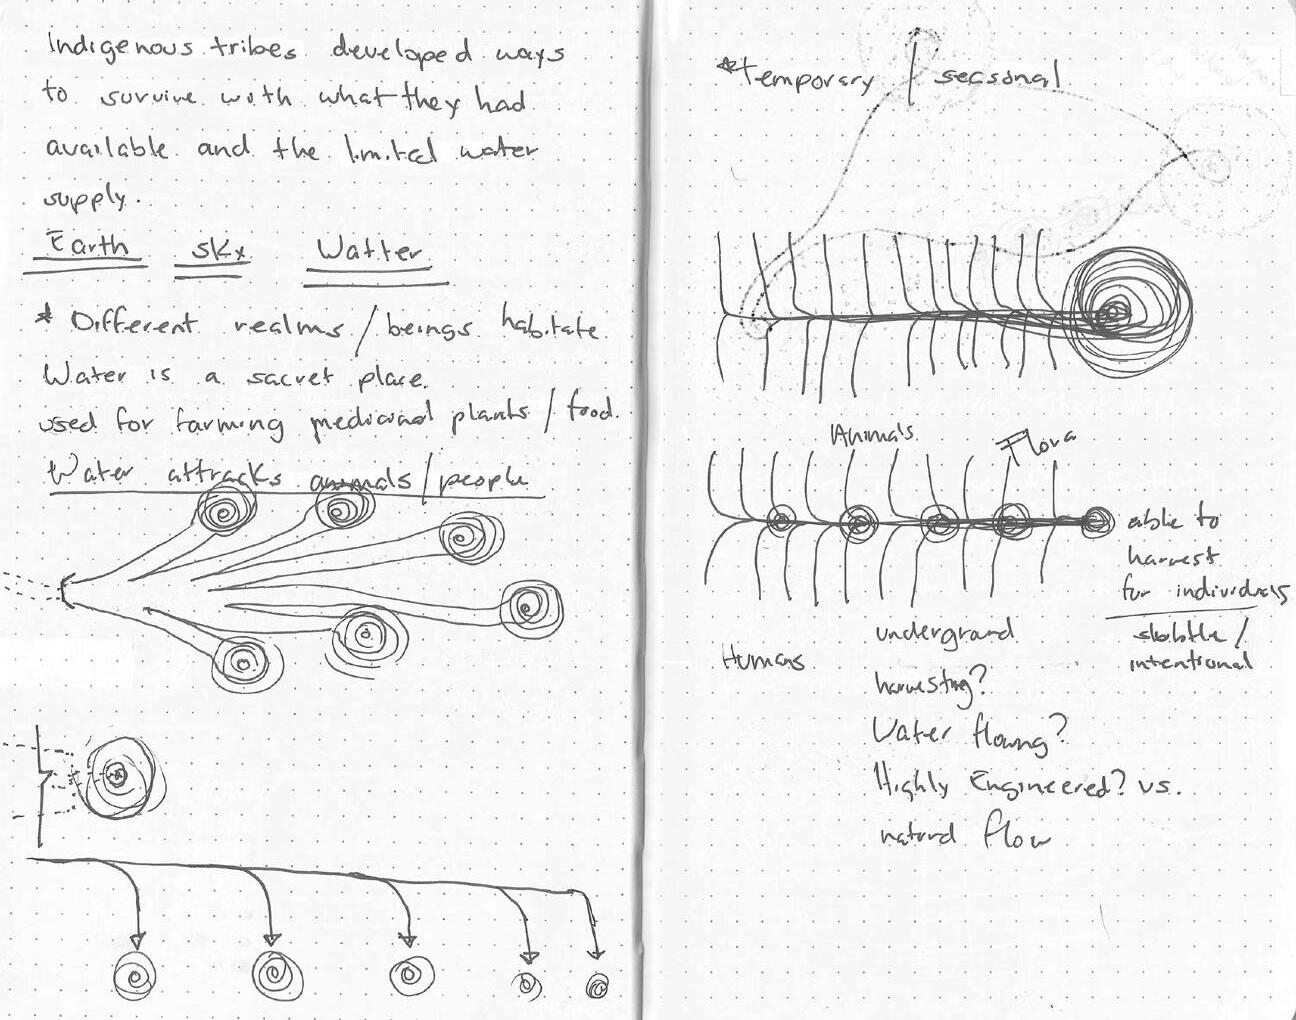 Indigenous tribes developed ways
to survive with what they had
available and the limited water
supply.
Earth Sky Watter
* Different realms / beings habitate
Water is a sacret place.
used for farming medicinal plants / food.
Water attracks animals / people
* temporary / seasonal
Animals
Flora
able to
harvest
for individuals
slobtle /
intentional
Humans
underground
harvesting?
Water flowing?
Highly Engineered? vs.
natural flow